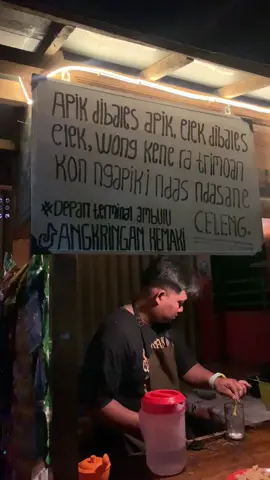 APIK dIBALES APIK, ELEK dIBALES
ELEK, WONG KENE RA TRIMOAN
KON NGAPIKI NDAS NDASANE
* DEPAN TERMINAL AMBULU CELENG.
ANGKRINGAN KEMAKI